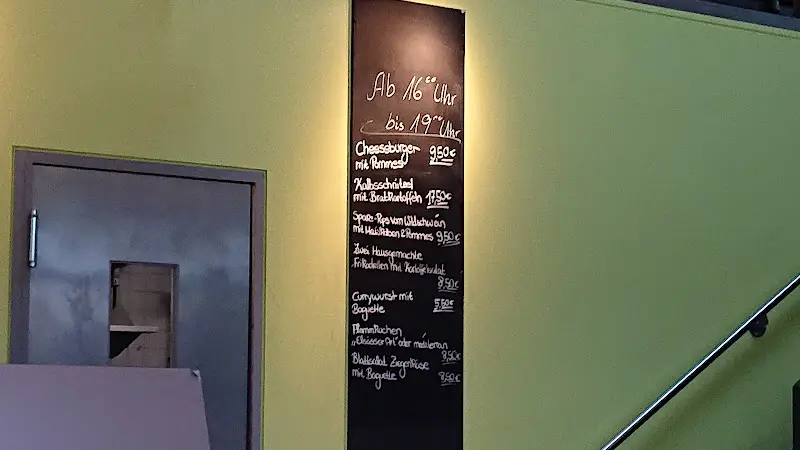 Ab 16⁰⁰ Uhr
bis 19⁰⁰ Uhr
Cheeseburger 9,50€
mit Pommes
Kalbsschnitzel
mit Bratkartoffeln 17,50€
Spare-Rips vom Wildschwein
mit Maiskolben & Pommes 9,50€
Zwei Hausgemachte
Frikadellen mit Kartoffelsalat
8,50€
Currywurst mit 5,50€
Baguette
Flammkuchen
„Elsässer Art" oder mediterran
8,50€
Blattsalat Ziegenkäse
mit Baguette 8,50€